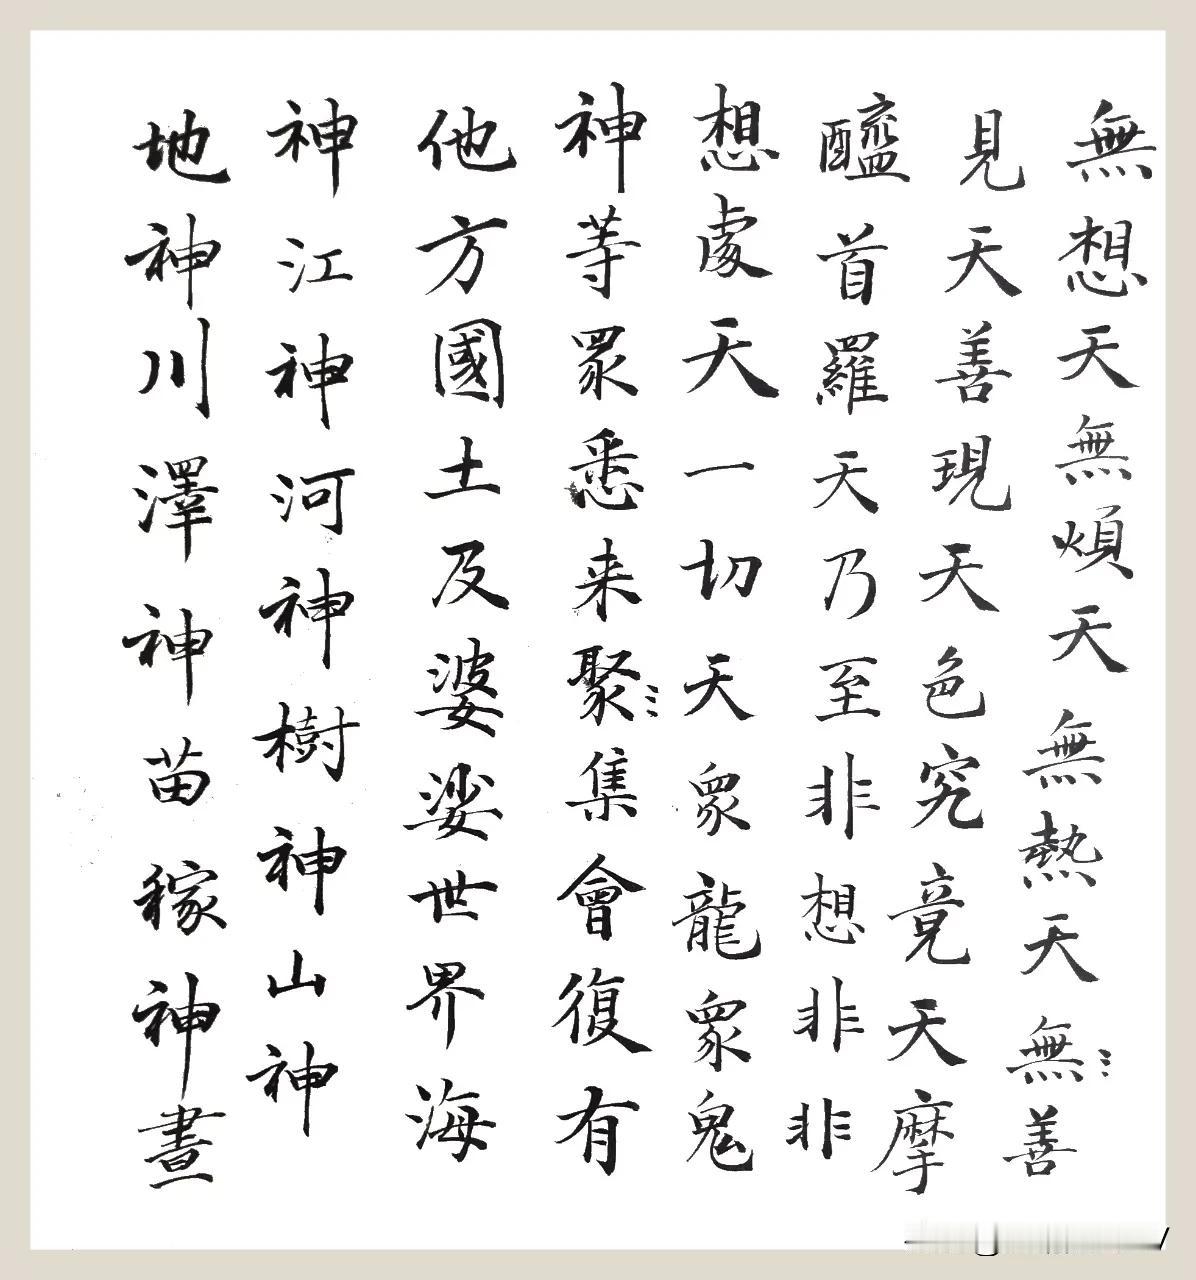 無想天無煩天無熱天無善
見天善現天色究竟天摩
醯首羅天乃至非想非非
想處天一切天眾龍眾鬼
神等眾悉来聚集會復有
他方國土及婆娑世界海
神江神河神樹神山神
地神川澤神苗稼神晝